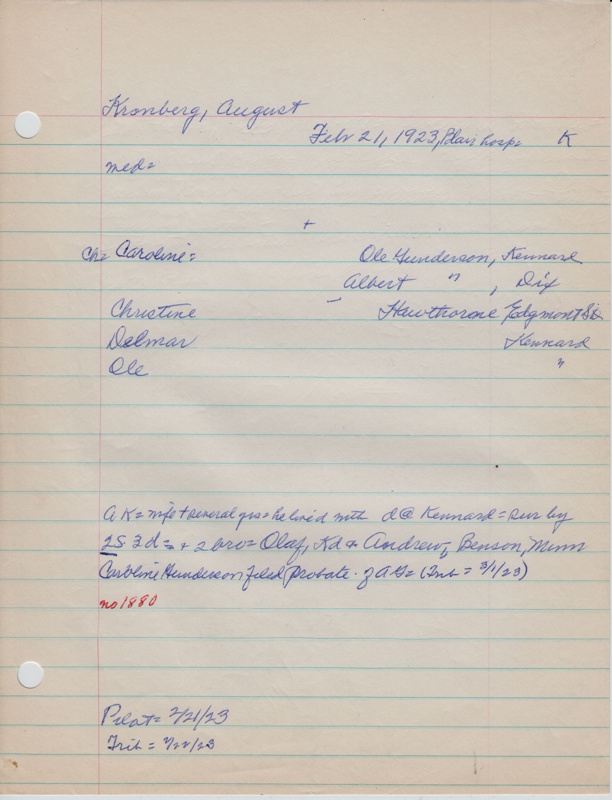 Kronberg, August
Feb 21, 1923, Blair hosp= K
med=
+
Ch= Caroline= Ole Gunderson, Kennard
Albert " , Dix
Christine — Hawthorne Edgmont SD
Delmar Kennard
Ole "
A K = wife + several yrs = he lived with d @ Kennard = sur by
2S 3d = + 2 bro = Olaf, Kd + Andrew, Benson, Minn
Caroline Gunderson filed probate. (Trib = 3/1/23)
no 1880
Pilot = 2/21/23
Trib = 2/22/23